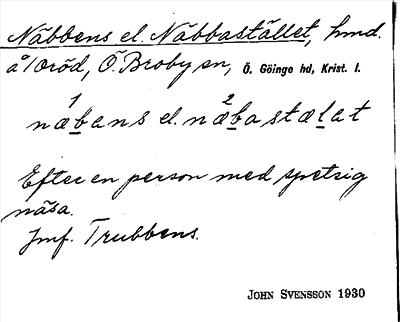 Näbbens el. Näbbastället, hmd.
å Oröd, Ö. Broby sn, Ö. Göinge hd, Krist. l.
1 2
næbans el. næbastælat
Efter en person med spetsig
näsa.
Jmf. Trubbens.
JOHN SVENSSON 1930